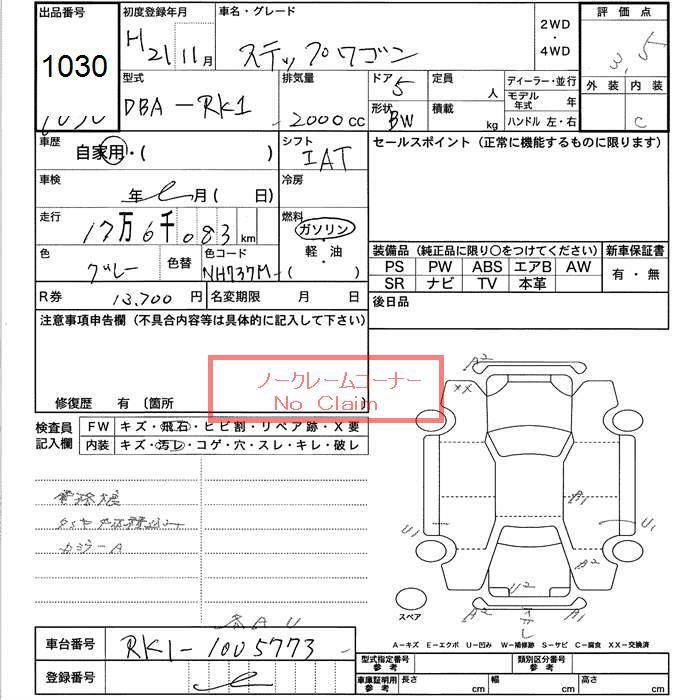 出品番号
1030
初度登録年月
H 21 11月
車名・グレード
ステップワゴン
2WD
・
4WD
評価点
3.5
外装 内装
C
型式
DBA-RK1
排気量
2000cc
ドア
5
形状
BW
定員
人
積載
kg
ディーラー・並行
モデル年式 年
ハンドル 左・右
車歴
自家用・( )
シフト
IAT
セールスポイント（正常に機能するものに限ります）
車検
年 月( 日)
冷房
走行
17万6千083km
燃料
ガソリン
軽・油
( )
色
グレー
色替
色コード
NH737M
装備品（純正品に限り○をつけてください）
新車保証書
PS PW ABS エアB AW
SR ナビ TV 本革
有・無
R券
13,700円
名変期限 月 日
後日品
注意事項申告欄（不具合内容等は具体的に記入して下さい）
ノークレームコーナー
No Claim
修復歴 有〔箇所
検査員記入欄
FW キズ・飛石・ヒビ割・リペア跡・X要
内装 キズ・汚レ・コゲ・穴・スレ・キレ・破レ
カミラーA
各AU
A2
XX
A1
U1
U1
A2
U2
A2
A1
スペア
A-キズ E-エクボ U-凹み W-補修跡 S-サビ C-腐食 XX-交換済
車台番号
RK1-1005773
登録番号
型式指定番号 参考
類別区分番号 参考
車庫証明用 参考
長さ cm
幅 cm
高さ cm